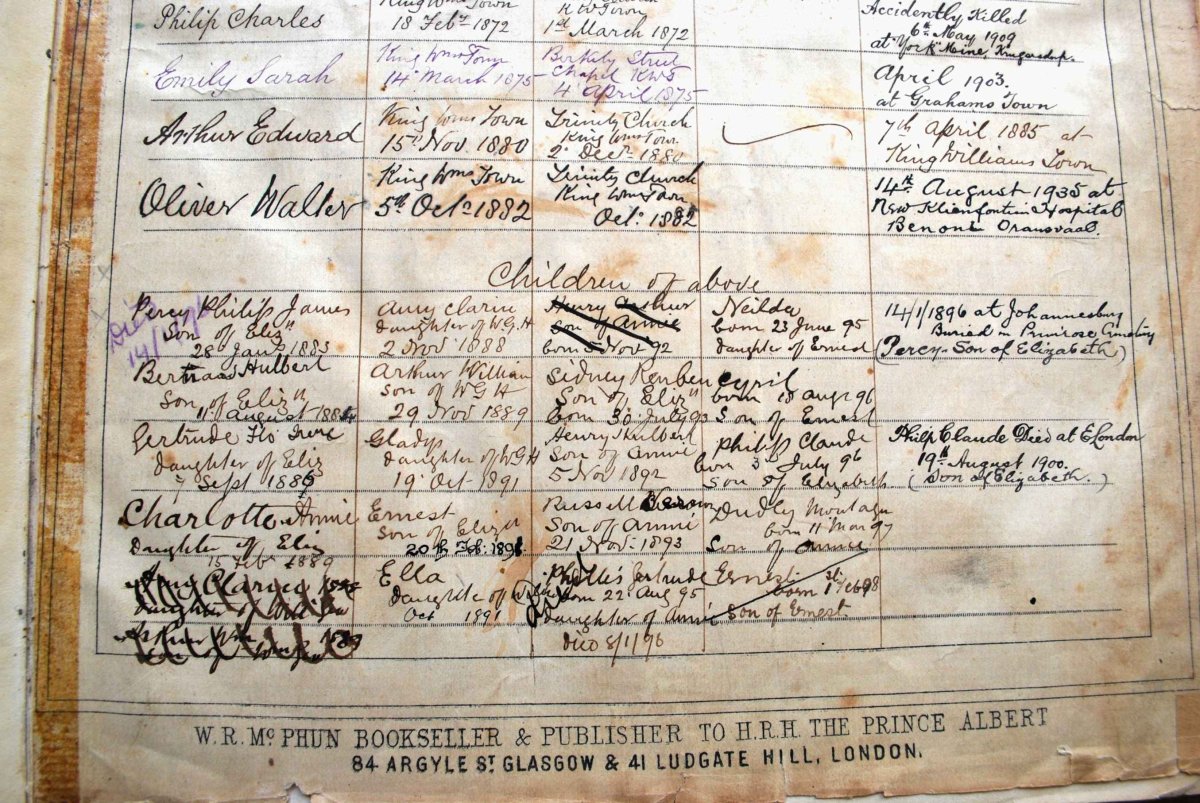 Philip Charles
King Wms Town
18 Feby 1872
K W Town
1st March 1872
Accidently Killed
6th May 1909
at York Mine, Krugersdp.
Emily Sarah
King Wms Town
14th March 1875
Berkely Street
Chapel KWT
4th April 1875
April 1903.
at Grahams Town
Arthur Edward
King Wms Town
15th Nov 1880
Trinity Church
King Wms Town
2d Decr 1880
7th April 1885 at
King Williams Town
Oliver Walter
King Wms Town
5th Octo 1882
Trinity Church
King Wms Town
Octo 1882
14th August 1935 at
New Klienfontein Hospital
Benoni Transvaal.
Children of above
Percy Philip James
Son of Elizth
28 Jany 1883
Died
Amy Clarice
daughter of W G H
2 Nov 1888
Henry Arthur
Son of Annie
born 5 Nov 92
Neilda
born 23 June 95
daughter of Ernest
14/1/1896 at Johannesburg
Buried in Primrose Cemetery
(Percy-Son of Elizabeth)
Bertram Hulbert
Son of Elizth
11th August 1884
Arthur William
Son of W G H
29 Nov 1889
Sidney Reuben
Son of Elizth
born 30 July 93
Cyril
born 18 augt 96
Son of Ernest
Gertrude Flo Irene
daughter of Eliz
Sept 1886
Gladys
daughter of W G H
19 Oct 1891
Henry Hulbert
Son of Annie
5 Nov 1892
Philip Claude
born 3rd July 96
Son of Elizabeth
Philip Claude Died at E London
19th August 1900.
(Son of Elizabeth.)
Charlotte Annie
Daughter of Eliz
15 Feby 1889
Ernest
Son of Elizth
20th Feb. 1891.
Russell
Son of Annie
21 Nov. 1893
Dudley Montagu
born 11 Mar 97
Son of Annie
Amy Clarice
daughter of
Ella
daughter of
Oct 1891
Phyllis Gertrude
born 22d Aug 95
daughter of Annie
Died 8/1/96
Ernest
born 1st Feb 98
Son of Ernest
Arthur Wm
W. R. Mc PHUN BOOKSELLER & PUBLISHER TO H.R.H. THE PRINCE ALBERT
84 ARGYLE ST GLASGOW & 41 LUDGATE HILL, LONDON.